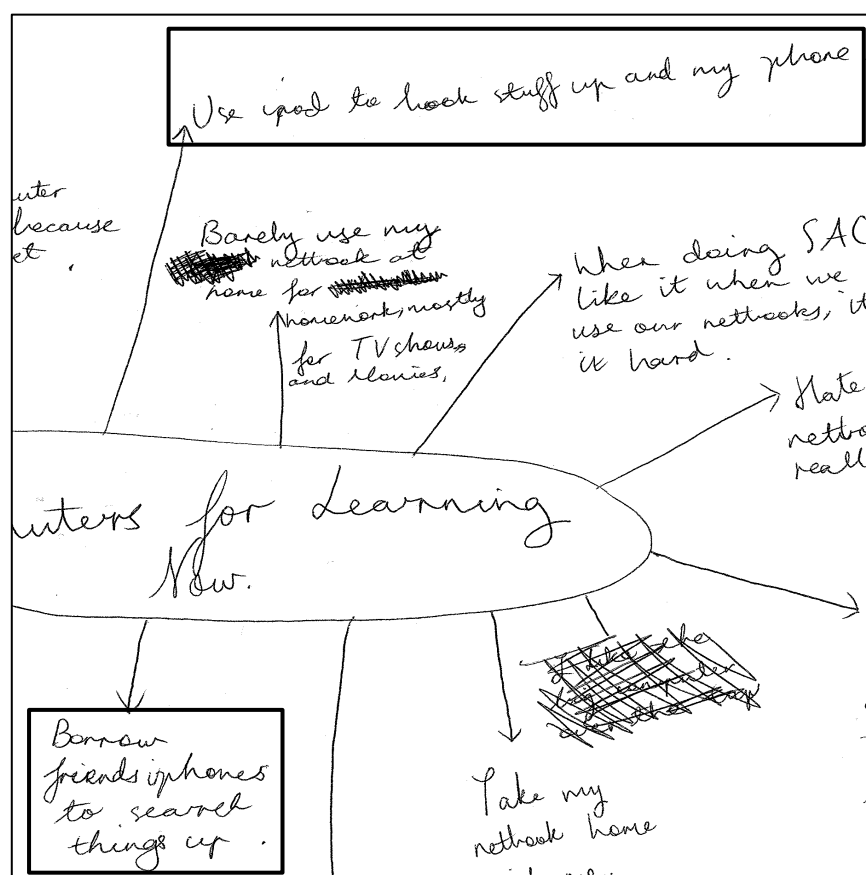 Use ipod to hook stuff up and my phone
uter
because
et .
Barely use my
netbook at
home for
homework, mostly
for TV shows,
and Movies.
When doing SAC
like it when we
use our netbooks, it
it hard.
Hate
netbo
reall
uters for Learning
Now.
I like the
big computer
Borrow
friends iphones
to search
things up .
Take my
netbook home